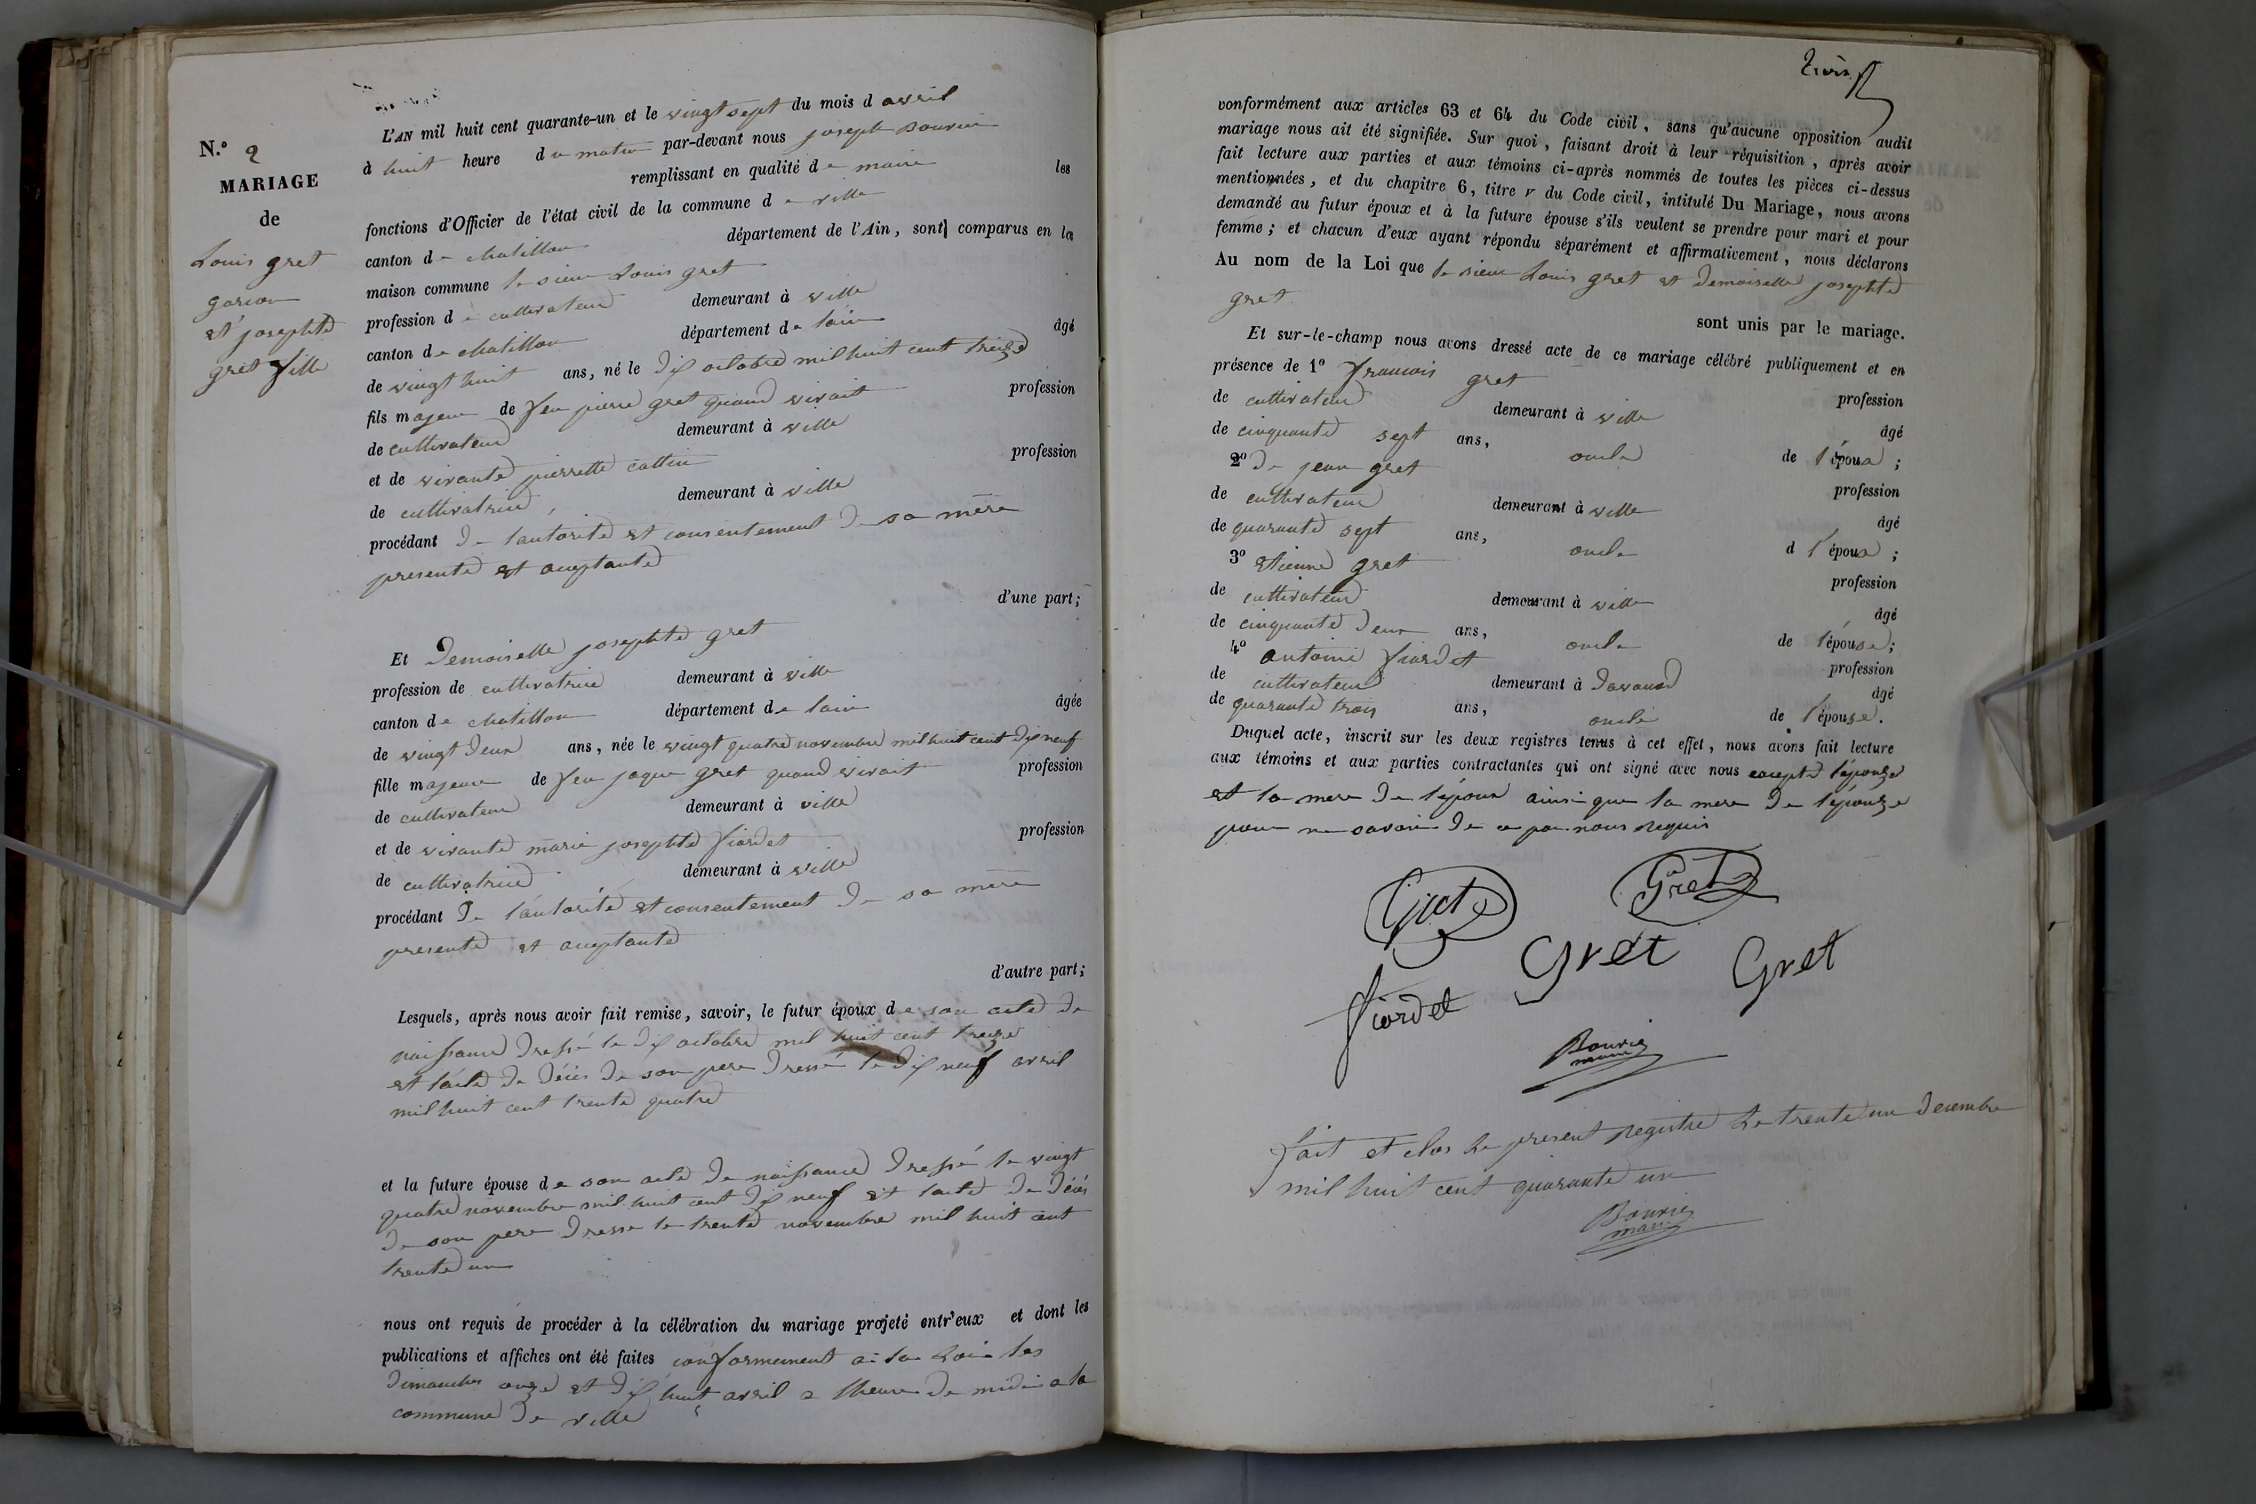 N.° 2
MARIAGE
de
Louis gret
garcon
et josephte
gret fille
L'AN mil huit cent quarante-un et le vingt sept du mois d avril
à huit heure du matin par-devant nous joseph Bouvier
remplissant en qualité de maire les
fonctions d'Officier de l'état civil de la commune de ville
canton de chatillon département de l'Ain, sont comparus en la
maison commune le sieur Louis gret
profession de cultivateur demeurant à ville
canton de chatillon département de lain âgé
de vingt huit ans, né le dix octobre mil huit cent treize
fils majeur de feu pierre gret quand vivait profession
de cultivateur demeurant à ville
et de vivante pierrette cattin profession
de cultivatrice, demeurant à ville
procédant de lautorité et consentement de sa mère
presente et aceptante
d'une part;
Et Demoiselle josephte gret
profession de cultivatrice demeurant à ville
canton de chatillon département de lain âgée
de vingt deux ans, née le vingt quatre novembre mil huit cent dix neuf
fille majeure de feu jaque gret quand vivait profession
de cultivateur demeurant à ville
et de vivante marie josephte fiardet profession
de cultivatrice demeurant à ville
procédant De lautorité et consentement de sa mère
presente et aceptante
d'autre part;
Lesquels, après nous avoir fait remise, savoir, le futur époux de son acte de
naissance dressé le dix octobre mil huit cent treize
et lacte de décès de son pere dressé le dix neuf avril
mil huit cent trente quatre
et la future épouse de son acte de naissance dressé le vingt
quatre novembre mil huit cent dix neuf et lacte de décès
de son pere dresse le trente novembre mil huit cent
trente un
nous ont requis de procéder à la célébration du mariage projeté entr'eux et dont les
publications et affiches ont été faites conformement a la Loi les
dimanches onze et dix huit avril a lheure de midi a la
commune de ville
conformément aux articles 63 et 64 du Code civil, sans qu'aucune opposition audit
mariage nous ait été signifiée. Sur quoi, faisant droit à leur réquisition, après avoir
fait lecture aux parties et aux témoins ci-après nommés de toutes les pièces ci-dessus
mentionnées, et du chapitre 6, titre v du Code civil, intitulé Du Mariage, nous avons
demandé au futur époux et à la future épouse s'ils veulent se prendre pour mari et pour
femme; et chacun d'eux ayant répondu séparément et affirmativement, nous déclarons
Au nom de la Loi que le sieur Louis gret et demoiselle josephte
gret
sont unis par le mariage.
Et sur-le-champ nous avons dressé acte de ce mariage célébré publiquement et en
présence de 1° francois gret profession
de cultivateur demeurant à ville âgé
de cinquante sept ans, oncle de l'époux;
2° de jean gret profession
de cultivateur demeurant à ville âgé
de quarante sept ans, oncle d l'époux;
3° etienne gret profession
de cultivateur demeurant à ville âgé
de cinquante deux ans, oncle de l'épouse;
4° antoine fiardet profession
de cultivateur demeurant à âgé
de quarante trois ans, oncle de l'épouse.
Duquel acte, inscrit sur les deux registres tenus à cet effet, nous avons fait lecture
aux témoins et aux parties contractantes qui ont signé avec nous excepté lépouze
et la mere de lépoux ainsi que la mere de lépouze
pour ne savoir de ce par nous requis
Gret Gret
Gret Gret
fiardet
Bouvier
maire
fait et clos le present registre le trente un decembre
mil huit cent quarante un
Bouvier
maire